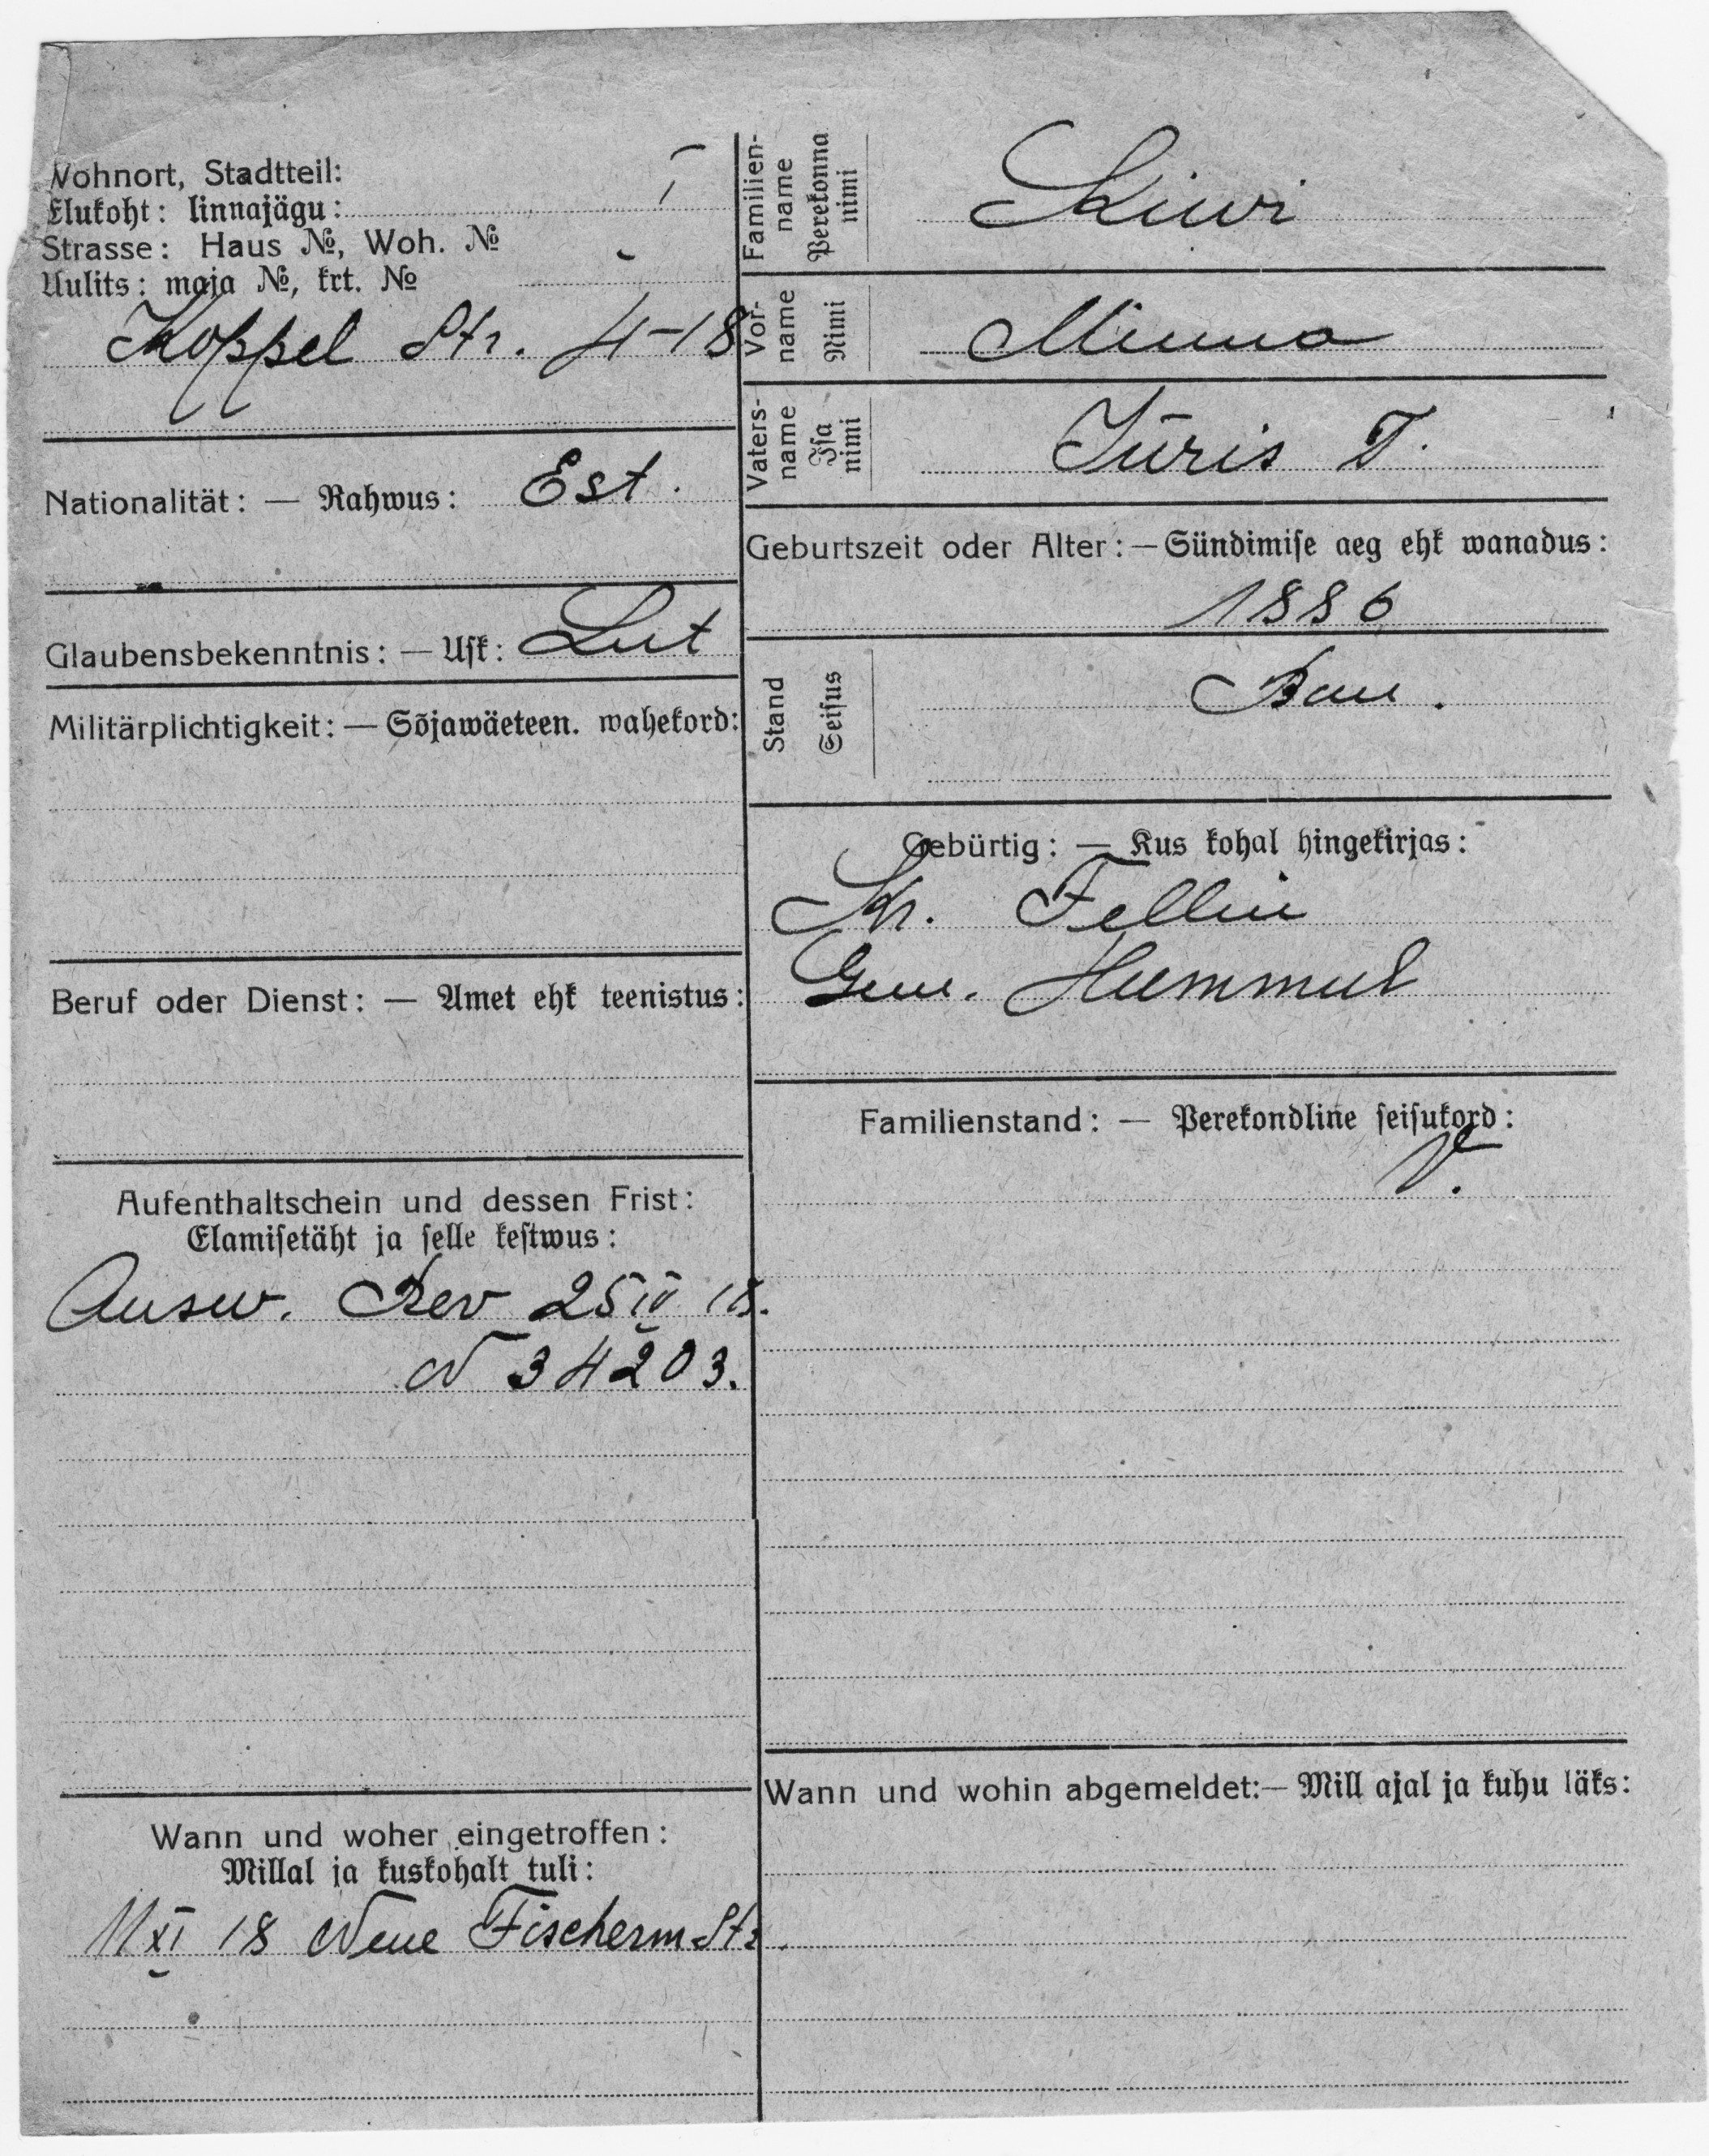 Wohnort, Stadtteil: I
Elukoht: linnajägu:
Strasse: Haus №, Woh. №
Uulits: maja №, krt. №
Koppel Str. 4-18
Nationalität: — Rahwus: Est.
Glaubensbekenntnis: — Usk: Lut
Militärplichtigkeit: — Sõjawäeteen. wahekord:
Beruf oder Dienst: — Amet ehk teenistus:
Aufenthaltschein und dessen Frist:
Elamisetäht ja selle kestwus:
Ausw. Rev 25 IV 18.
N 34203.
Wann und woher eingetroffen:
Millal ja kuskohalt tuli:
11 XI 18 Neue Fischerm. Str.
Familien-
name
Perekonna
nimi
Kiwi
Vor-
name
Nimi
Minna
Vaters-
name
Isa
nimi
Jüris T.
Geburtszeit oder Alter: — Sündimise aeg ehk wanadus:
1886
Stand
Seisus
Bau.
Gebürtig: — Kus kohal hingekirjas:
Kr. Fellin
Gem. Hummul
Familienstand: — Perekondline seisukord:
V.
Wann und wohin abgemeldet: — Mill ajal ja kuhu läks: